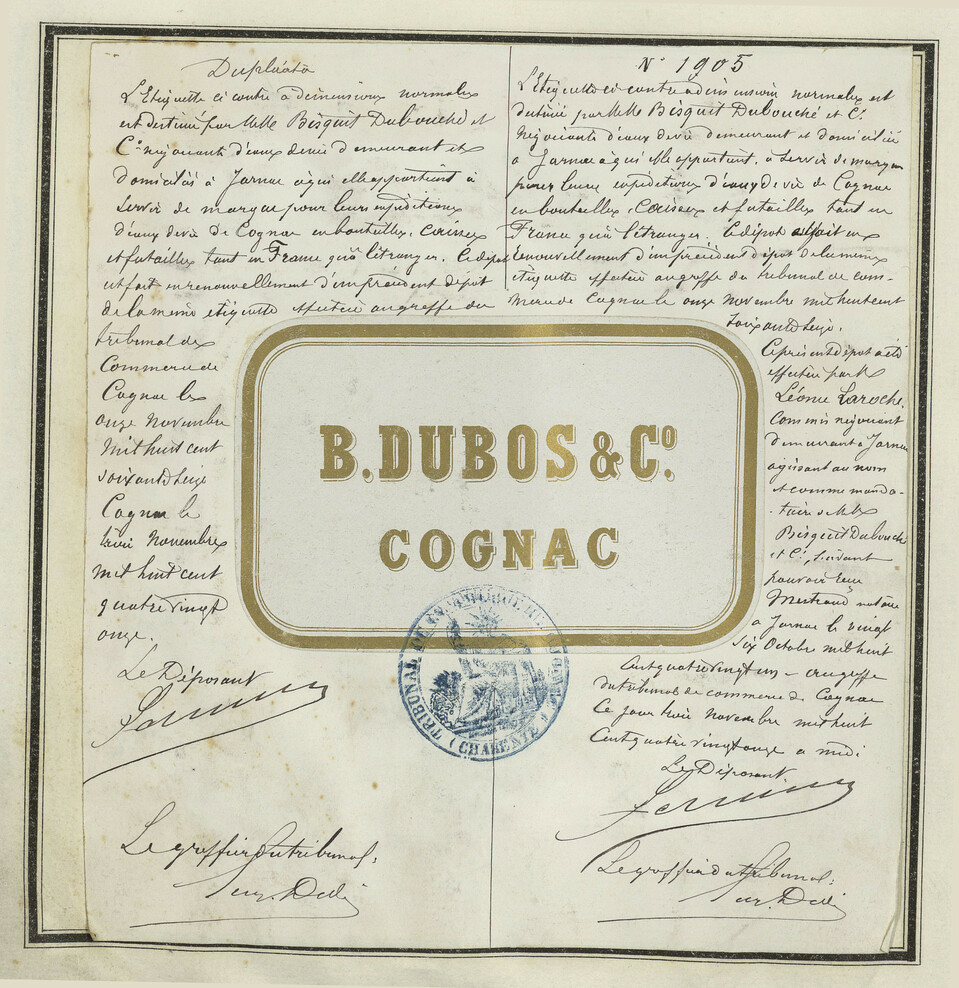 Duplicata
L'Etiquette ci contre à dimensions normales
est destinée par MM. Bisquit Dubouché et
Cie négociants d'eaux de vie demeurant et
domiciliés à Jarnac à qui elle appartient à
servir de marque pour leurs expéditions
d'eaux de vie de Cognac en bouteilles, caisses
et futailles tant en France qu'à l'étranger. Ce dépot
est fait en renouvellement d'un précédent dépot
de la même étiquette effectué au greffe du
tribunal de
Commerce de
Cognac le
onze Novembre
mil huit cent
soixante seize
Cognac le
trois Novembre
mil huit cent
quatre vingt
onze.
Le Déposant
Le greffier du tribunal:
N° 1905
L'Etiquette ci contre à dimension normales est
destinée par MM. Bisquit Dubouché et Cie
Négociants d'eaux de vie demeurant et domiciliés
à Jarnac à qui elle appartient, à servir de marque
pour leurs expéditions d'eaux de vie de Cognac
en bouteilles, caisses et futailles tant en
France qu'à l'étranger. Ce dépot est fait en
renouvellement d'un précédent dépot de la même
étiquette effectué au greffe du tribunal de com-
merce de Cognac le onze Novembre mil huit cent
soixante seize.
Ce présent dépot a été
effectué par M.
Léonce Laroche,
Commis négociant
demeurant à Jarnac
agissant au nom
et comme manda-
-taire de MM.
Bisquit Dubouché
et Cie, suivant
pouvoir reçu
Mestreau notaire
à Jarnac le vingt
six Octobre mil huit
cent quatre vingt un - au greffe
du tribunal de commerce de Cognac
Ce jour trois Novembre mil huit
Cent quatre vingt onze à midi
Le Déposant
Le greffier du tribunal:
B. DUBOS & Co.
COGNAC
TRIBUNAL DE COMMERCE DE COGNAC
(CHARENTE)